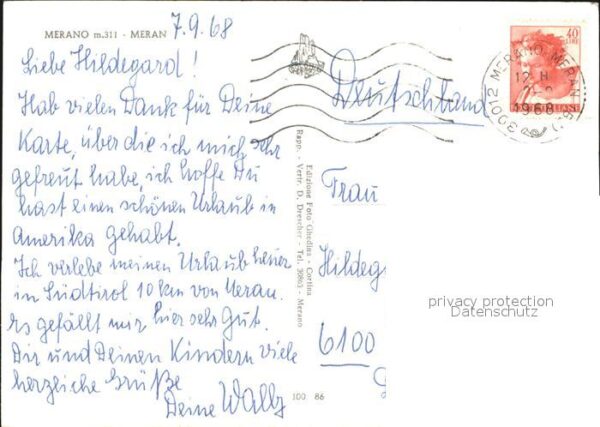 MERANO m.311 - MERAN
7.9.68
Liebe Hildegard!
Hab vielen Dank für Deine
Karte, über die ich mich sehr
gefreut habe, ich hoffe Du
hast einen schönen Urlaub in
Amerika gehabt.
Ich verlebe meinen Urlaub heuer
in Südtirol 10 km von Meran.
Es gefällt mir hier sehr gut.
Dir und Deinen Kindern viele
herzliche Grüße
Deine Wally
Edizione Foto Ghedina - Cortina
Rapp. - Vertr. D. Drescher - Tel. 30863 - Merano
100 86
40
LIRE
39012 MERANO MERAN
12 H
1968
Deutschland
Frau
Hildeg
6100
privacy protection
Datenschutz